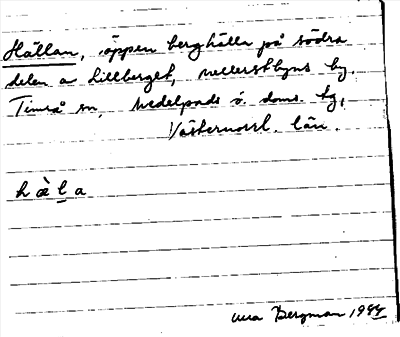 Hällan, öppen berghälla på södra
delen a Lillberget, Mellersthyns by.
Timrå sn, Medelpads ö. doms. tg,
Västernorrl. län.
hàla
Bergman 1944